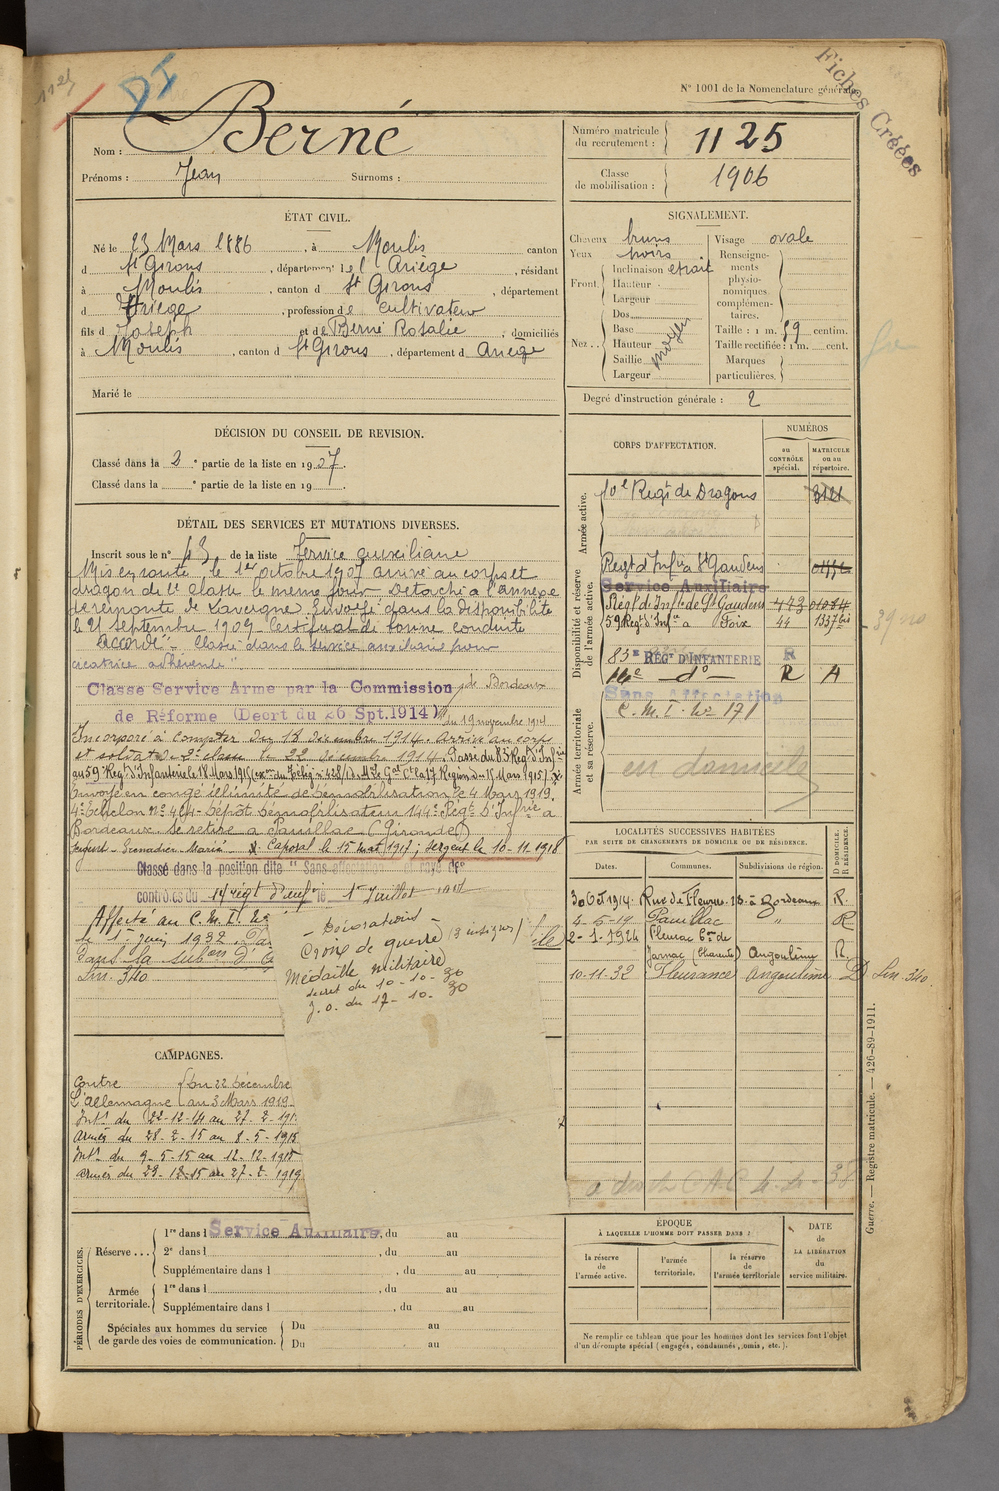 1125
DI
Fiches Créées
N° 1001 de la Nomenclature générale.
Nom : Berné
Prénoms : Jean Surnoms :
Numéro matricule du recrutement : 1125
Classe de mobilisation : 1906
ÉTAT CIVIL.
Né le 23 Mars 1886, à Moulis canton
d St Girons, département de l'Ariège, résidant
à Moulis, canton d St Girons, département
d Ariège, profession de cultivateur
fils d Joseph et de Berné Rosalie, domiciliés
à Moulis, canton d St Girons, département d Ariège
Marié le
SIGNALEMENT.
Cheveux bruns
Yeux noirs
Front. Inclinaison etroit
Hauteur
Largeur
Nez.. Dos
Base
Hauteur
Saillie
Largeur
moyen
Visage ovale
Renseignements physionomiques complémentaires.
Taille : 1 m. 59 centim.
Taille rectifiée : 1 m. cent.
Marques particulières.
Degré d'instruction générale : 2
DÉCISION DU CONSEIL DE REVISION.
Classé dans la 2 e partie de la liste en 1907.
Classé dans la e partie de la liste en 19
DÉTAIL DES SERVICES ET MUTATIONS DIVERSES.
Inscrit sous le n° 43 de la liste Service auxiliaire
Mis en route le 1er octobre 1907 arrivé au corps et
dragon de 2e classe le meme jour. Detaché a l'annexe
de remonte de Lavergne. Envoyé dans la disponibilité
le 21 septembre 1909. Certificat de bonne conduite
Accordé". Classé dans le service auxiliaire pour
"cicatrice adhérente"
Classe Service Arme par la Commission de Bordeaux
de Réforme (Decrt du 26 Spt.1914) du 19 novembre 1914
Incorporé à compter du 18 décembre 1914. Arrivé au corps
et soldat de 2e classe le 22 décembre 1914. Passé du 83e Régt d'Infrie
au 59e Régt d'Infanterie le 18 Mars 1915
Envoyé en congé illimité de démobilisation le 4 Mars 1919.
4e Echelon N° 464 - Dépôt démobilisateur 144e Régt d'Infrie à
Bordeaux. Se retire à Pauillac (Gironde)
Caporal le 15 mai 1917; Sergent le 10-11-1918
Classé dans la position dite " Sans affectation
contrôles du régt d'inf le 1er Juillet
Affecté au C.M.I. N°
le 1er juin 1932.
dans la subon d'
Lin. 340
- Décorations -
Croix de guerre (3 insignes)
Médaille militaire
décret du 10-10-30
J.O. du 17-10-30
CAMPAGNES.
Contre l'Allemagne du 22 décembre
au 3 Mars 1919.
Intr du 22-12-14 au 27-2-191
Armés du 28-2-15 au 8-5-1915
Intr du 9-5-15 au 12-12-1915
Armés du 23-12-15 au 27-2-1919
CORPS D'AFFECTATION.
NUMÉROS
au CONTRÔLE spécial.
MATRICULE ou au répertoire.
Armée active.
10e Régt de Dragons 3121
Disponibilité et réserve de l'armée active.
Regt d'Infie à St Gaudens
Service Auxiliaire
Régt d'Infie de St Gaudens 473 01084
59e Regt d'Infie à Foix 44 1337 bis
83e RÉGt D'INFANTERIE R
14e - do - R A
Armée territoriale et sa réserve.
Sans Affectation
C.M.I. N° 171
en domicile
LOCALITÉS SUCCESSIVES HABITÉES
PAR SUITE DE CHANGEMENTS DE DOMICILE OU DE RÉSIDENCE.
Dates. Communes. Subdivisions de région. D DOMICILE. R RÉSIDENCE.
30 Oct 1914. Rue de Fleurus 13 à Bordeaux R.
4-5-19 Pauillac " R
2-1-1924 Fleurac Cne de
Jarnac (Charente) Angoulême R.
10-11-32 Fleurance Angoulême D Lin. 340.
Guerre. — Registre matricule. — 426-89-1911.
PÉRIODES D'EXERCICES.
Réserve... 1re dans l Service Auxiliaire, du au
2e dans l , du au
Supplémentaire dans l , du au
Armée territoriale. 1re dans l , du au
Supplémentaire dans l , du au
Spéciales aux hommes du service de garde des voies de communication. Du au
Du au
ÉPOQUE
À LAQUELLE L'HOMME DOIT PASSER DANS :
la réserve de l'armée active.
l'armée territoriale.
la réserve de l'armée territoriale
DATE de LA LIBÉRATION du service militaire.
Ne remplir ce tableau que pour les hommes dont les services font l'objet
d'un décompte spécial (engagés, condamnés, omis, etc.).